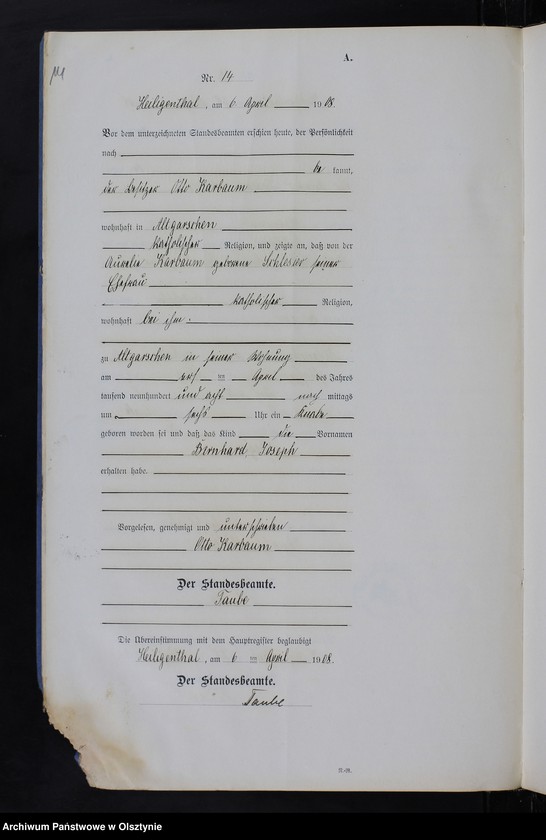 A.
Nr. 14
Heiligenthal, am 6 April 1908.
Vor dem unterzeichneten Standesbeamten erschien heute, der Persönlichkeit
nach
be kannt,
der Besitzer Otto Karbaum
wohnhaft in Altgarschen
katholischer Religion, und zeigte an, daß von der
Aurelia Karbaum geborene seiner
Ehefrau
katholischer Religion,
wohnhaft bei ihm
zu Altgarschen in seiner Wohnung
am April des Jahres
tausend neunhundert und acht nach mittags
um sechs Uhr ein Knabe
geboren worden sei und daß das Kind die Vornamen
Bernhard, Joseph
erhalten habe.
Vorgelesen, genehmigt und unterschrieben
Otto Karbaum
Der Standesbeamte.
Taube
Die Übereinstimmung mit dem Hauptregister beglaubigt
Heiligenthal, am 6 ten April 1908.
Der Standesbeamte.
Taube
Archiwum Państwowe w Olsztynie